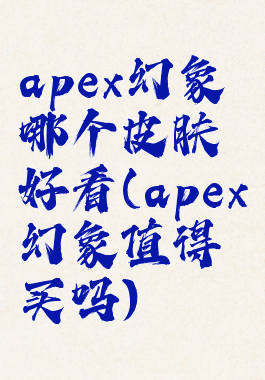 apex幻象
哪个皮肤
好看(apex
幻象值得
买吗)